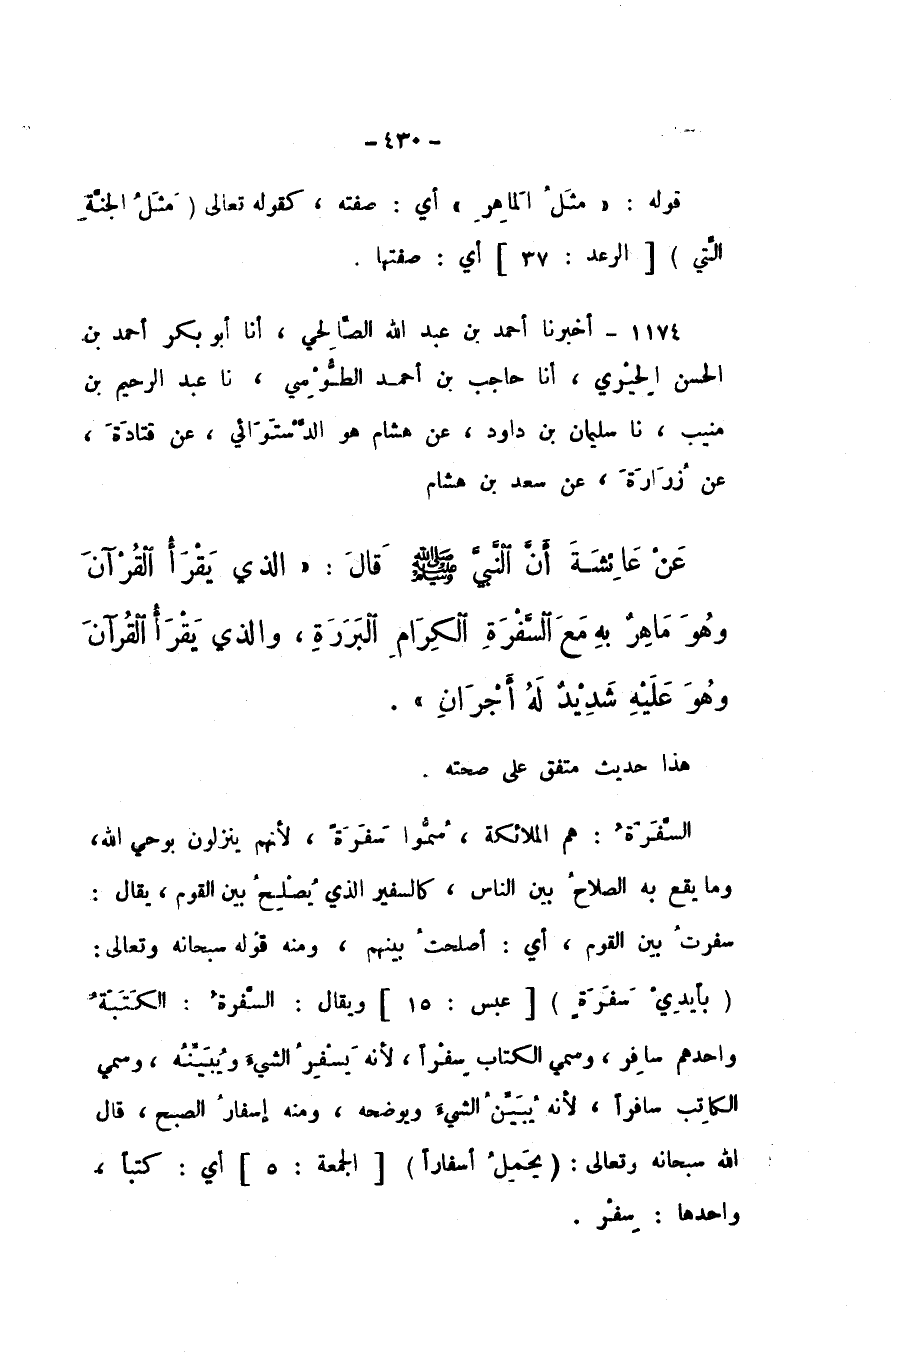 - ٤٣٠ -
قوله : « مثَلُ الماهِرِ » أي : صفته ، كقوله تعالى ( مَثَلُ الجنَّةِ
الَّتي ) [ الرعد : ٣٧ ] أي : صفتها .
١١٧٤ - أخبرنا أحمد بن عبد الله الصَّالِحي ، أنا أبو بكر أحمد بن
الحسن الحِيْري ، أنا حاجب بن أحمـد الطُّوْسِي ، نا عبد الرحيم بن
منيب ، نا سليمان بن داود ، عن هشام هو الدَّسْتَوَائي ، عن قتادَةَ ،
عن زُرَارَةَ ، عن سعد بن هشام
عَنْ عَائِشَةَ أَنَّ ٱلنَّبِيَّ ﷺ قَالَ : « الذي يَقْرَأُ ٱلْقُرْآنَ
وهُوَ مَاهِرٌ بِهِ مَعَ ٱلسَّفْرَةِ ٱلْكِرَامِ ٱلْبَرَرَةِ ، والذي يَقْرَأُ ٱلْقُرآنَ
وهُوَ عَلَيْهِ شَدِيْدٌ لَهُ أَجْرَانِ » .
هذا حديث متفق على صحته .
السَّفَرَةُ : هم الملائكة ، سُمُّوا سَفَرَةً ، لأنهم ينزلون بوحي الله،
وما يقع به الصلاحُ بين الناس ، كالسفير الذي يُصْلِحُ بين القوم ، يقال :
سفرتُ بين القوم ، أي : أصلحتُ بينهم ، ومنه قوله سبحانه وتعالى :
( بأيدِيْ سَفَرَةٍ ) [ عبس : ١٥ ] ويقال : السَّفرةُ : الكَتَبَةُ
واحدهم سافِر ، وسمي الكتاب سِفْراً ، لأنه يَسْفِرُ الشيءَ ويُبَيِّنُه ، وسمي
الكاتِب سافراً ، لأنه يُبَيِّنُ الشيءَ ويوضحه ، ومنه إسفارُ الصبح ، قال
الله سبحانه وتعالى : ( يحَمِلُ أسفاراً ) [ الجمعة : ٥ ] أي : كتباً ،
واحدها : سِفْر .